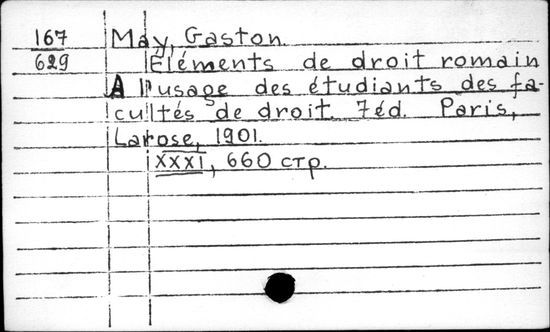 167
629
May, Gaston.
Eléments de droit romain
A l'usage des étudiants des fa-
cultés de droit. 7éd. Paris,
Larose, 1901.
XXXI, 660 стр.